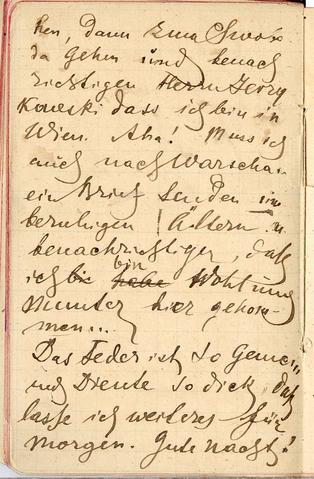 hen, dann
da gehen und benach
richtigen Herrn Jerzy
kowski dass ich bin in
Wien. Aha! Muss ich
auch nach Warschau
ein Brief senden um
beruhigen Ältern u
benachrichtigen, daß
ich bin Wohl und
Munter hier gekom-
men...
Das Feder ist so gemein
und Diente so dick, daß
lasse ich weiteres für
morgen. Gute Nacht!